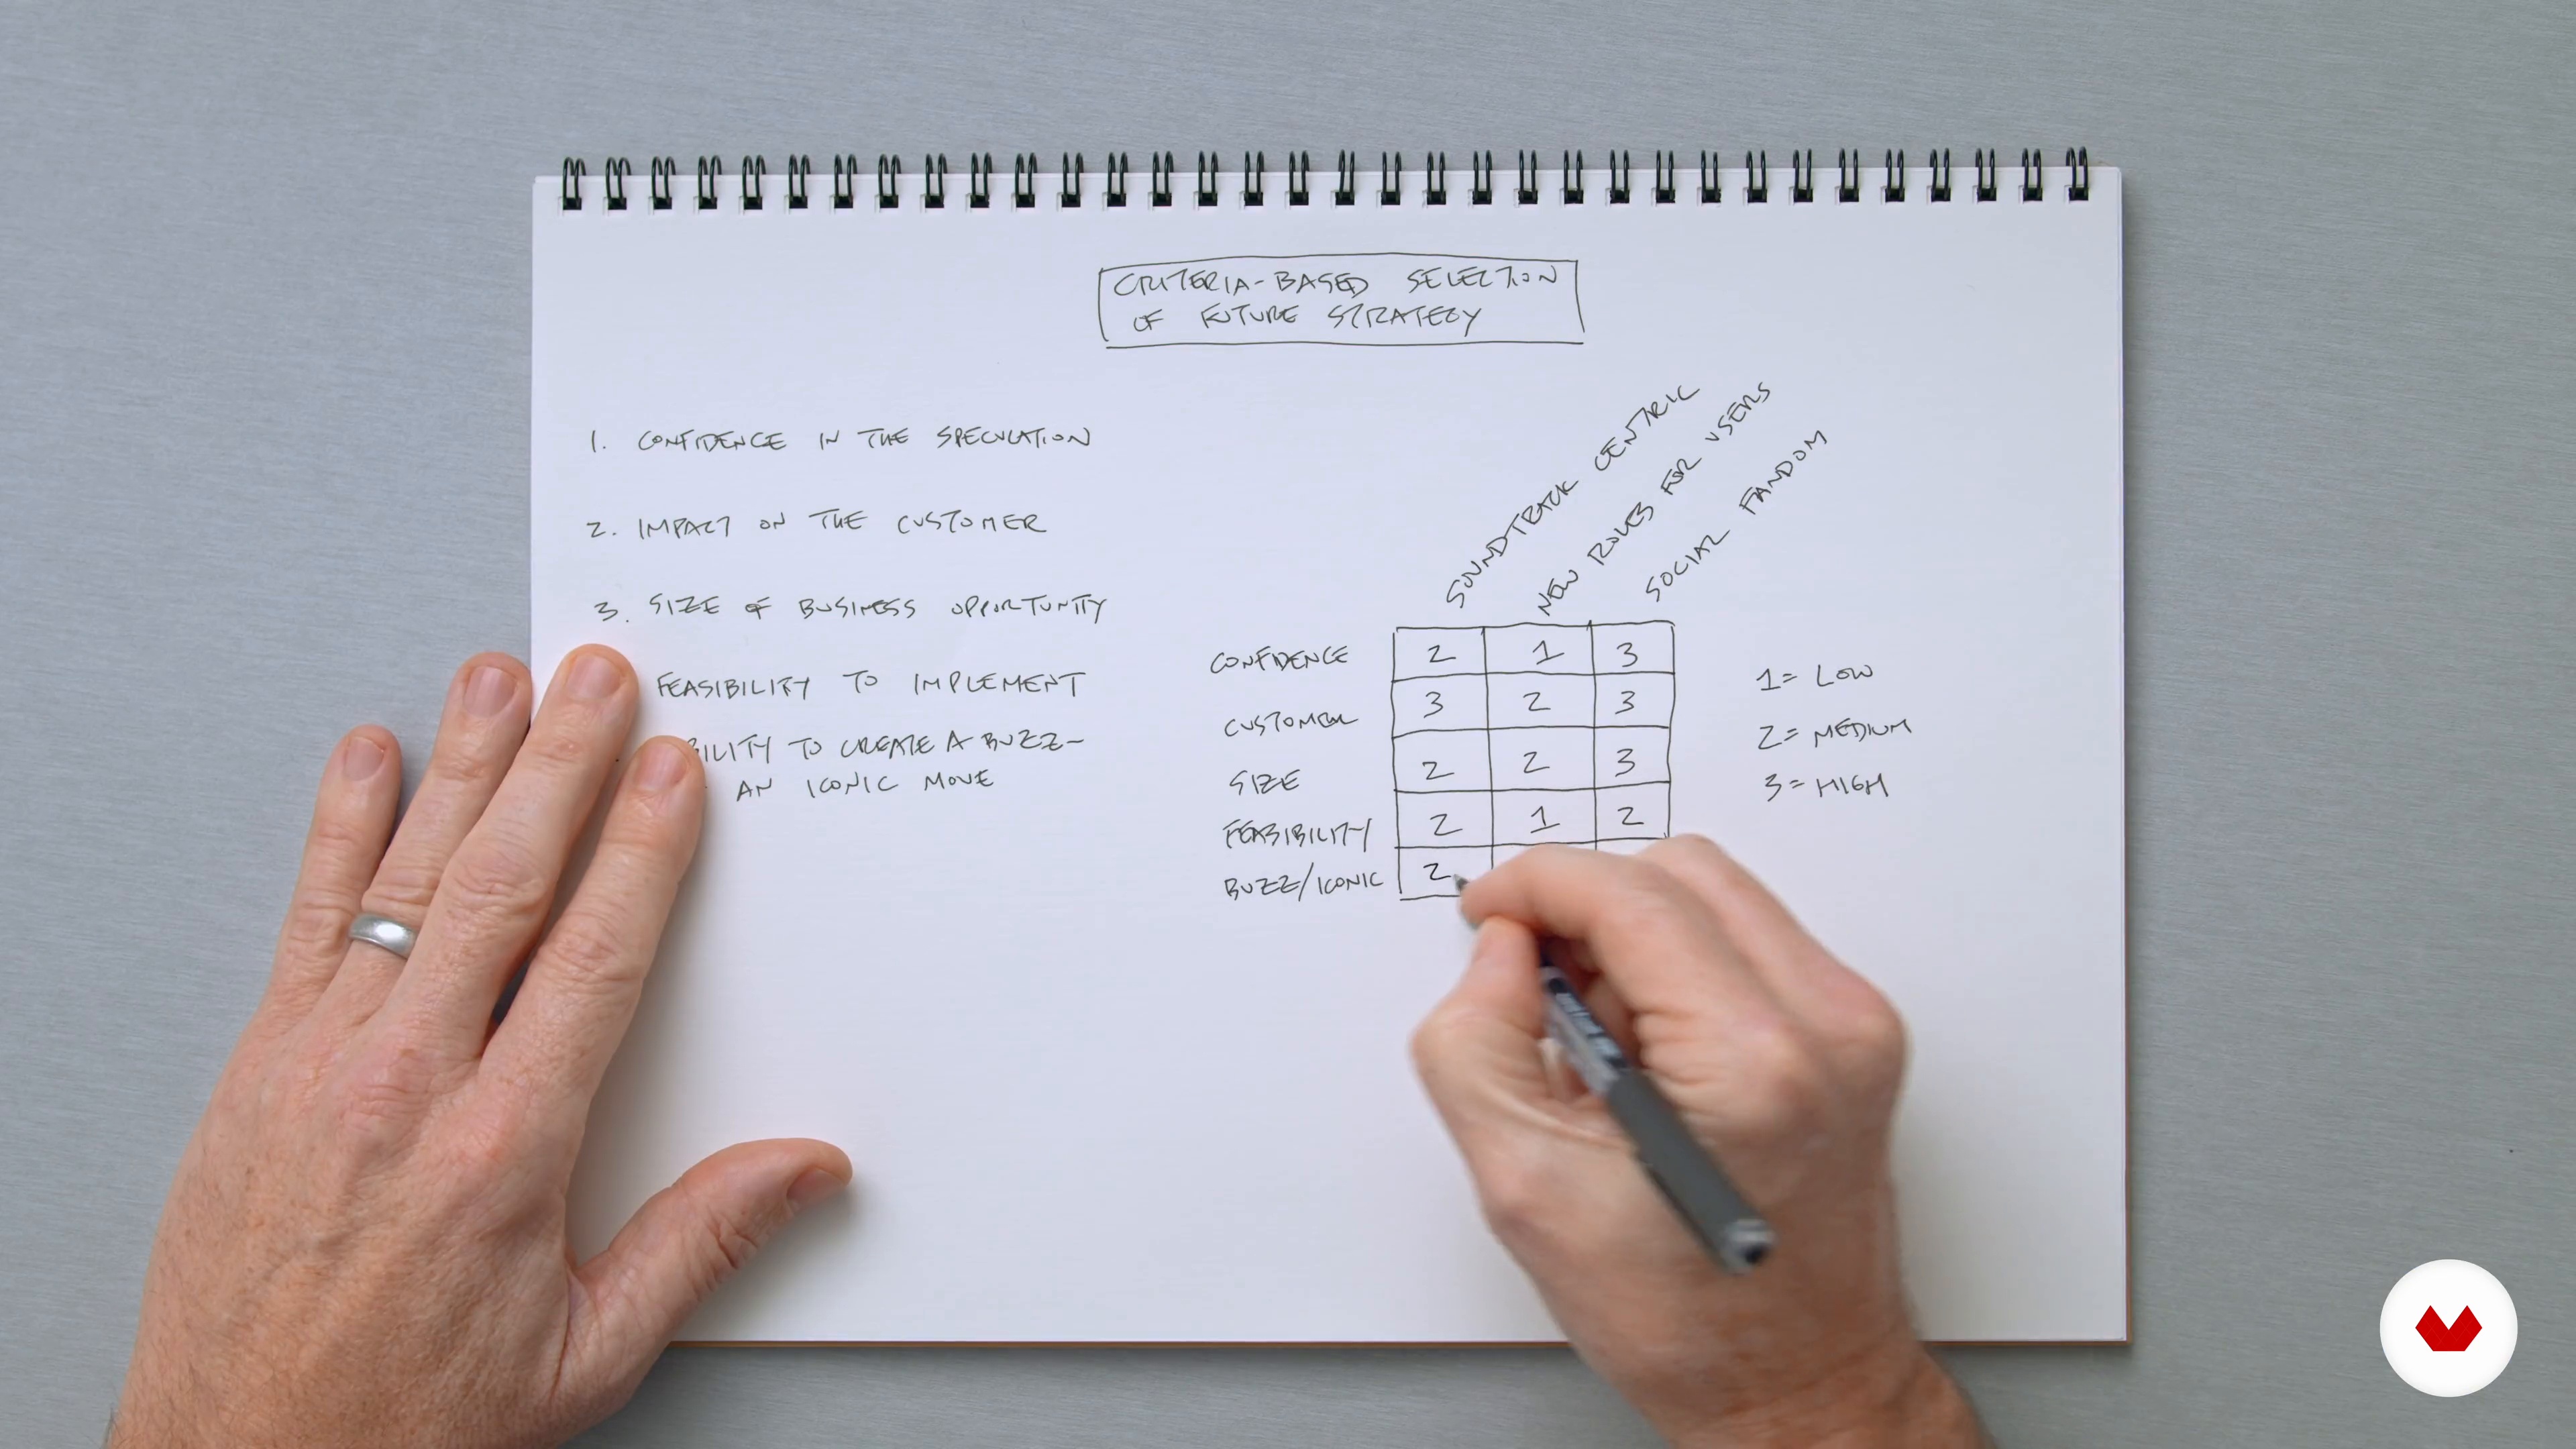 CRITERIA-BASED SELECTION
OF FUTURE STRATEGY
1. CONFIDENCE IN THE SPECULATION
2. IMPACT ON THE CUSTOMER
3. SIZE OF BUSINESS OPPORTUNITY
FEASIBILITY TO IMPLEMENT
BILITY TO CREATE A BUZZ-
AN ICONIC MOVE
SOUNDTRACK CENTRIC
NEW ROLES FOR USERS
SOCIAL FANDOM
CONFIDENCE 2 1 3
CUSTOMER 3 2 3
SIZE 2 2 3
FEASIBILITY 2 1 2
BUZZ/ICONIC 2
1= LOW
2= MEDIUM
3= HIGH